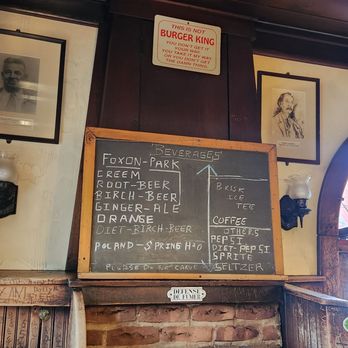 THIS IS NOT
BURGER KING
YOU DON'T GET IT
YOUR WAY.
YOU TAKE IT MY WAY,
OR YOU DON'T GET
THE DAMN THING.
BEVERAGES
FOXON-PARK
CREEM
ROOT-BEER
BIRCH-BEER
GINGER-ALE
ORANGE
DIET-BIRCH-BEER
POLAND-SPRING H2O
PLEASE DO NOT CARVE
BRISK
ICE
TEE
COFFEE
OTHERS
PEPSI
DIET-PEPSI
SPRITE
SELTZER
DÉFENSE
DE FUMER